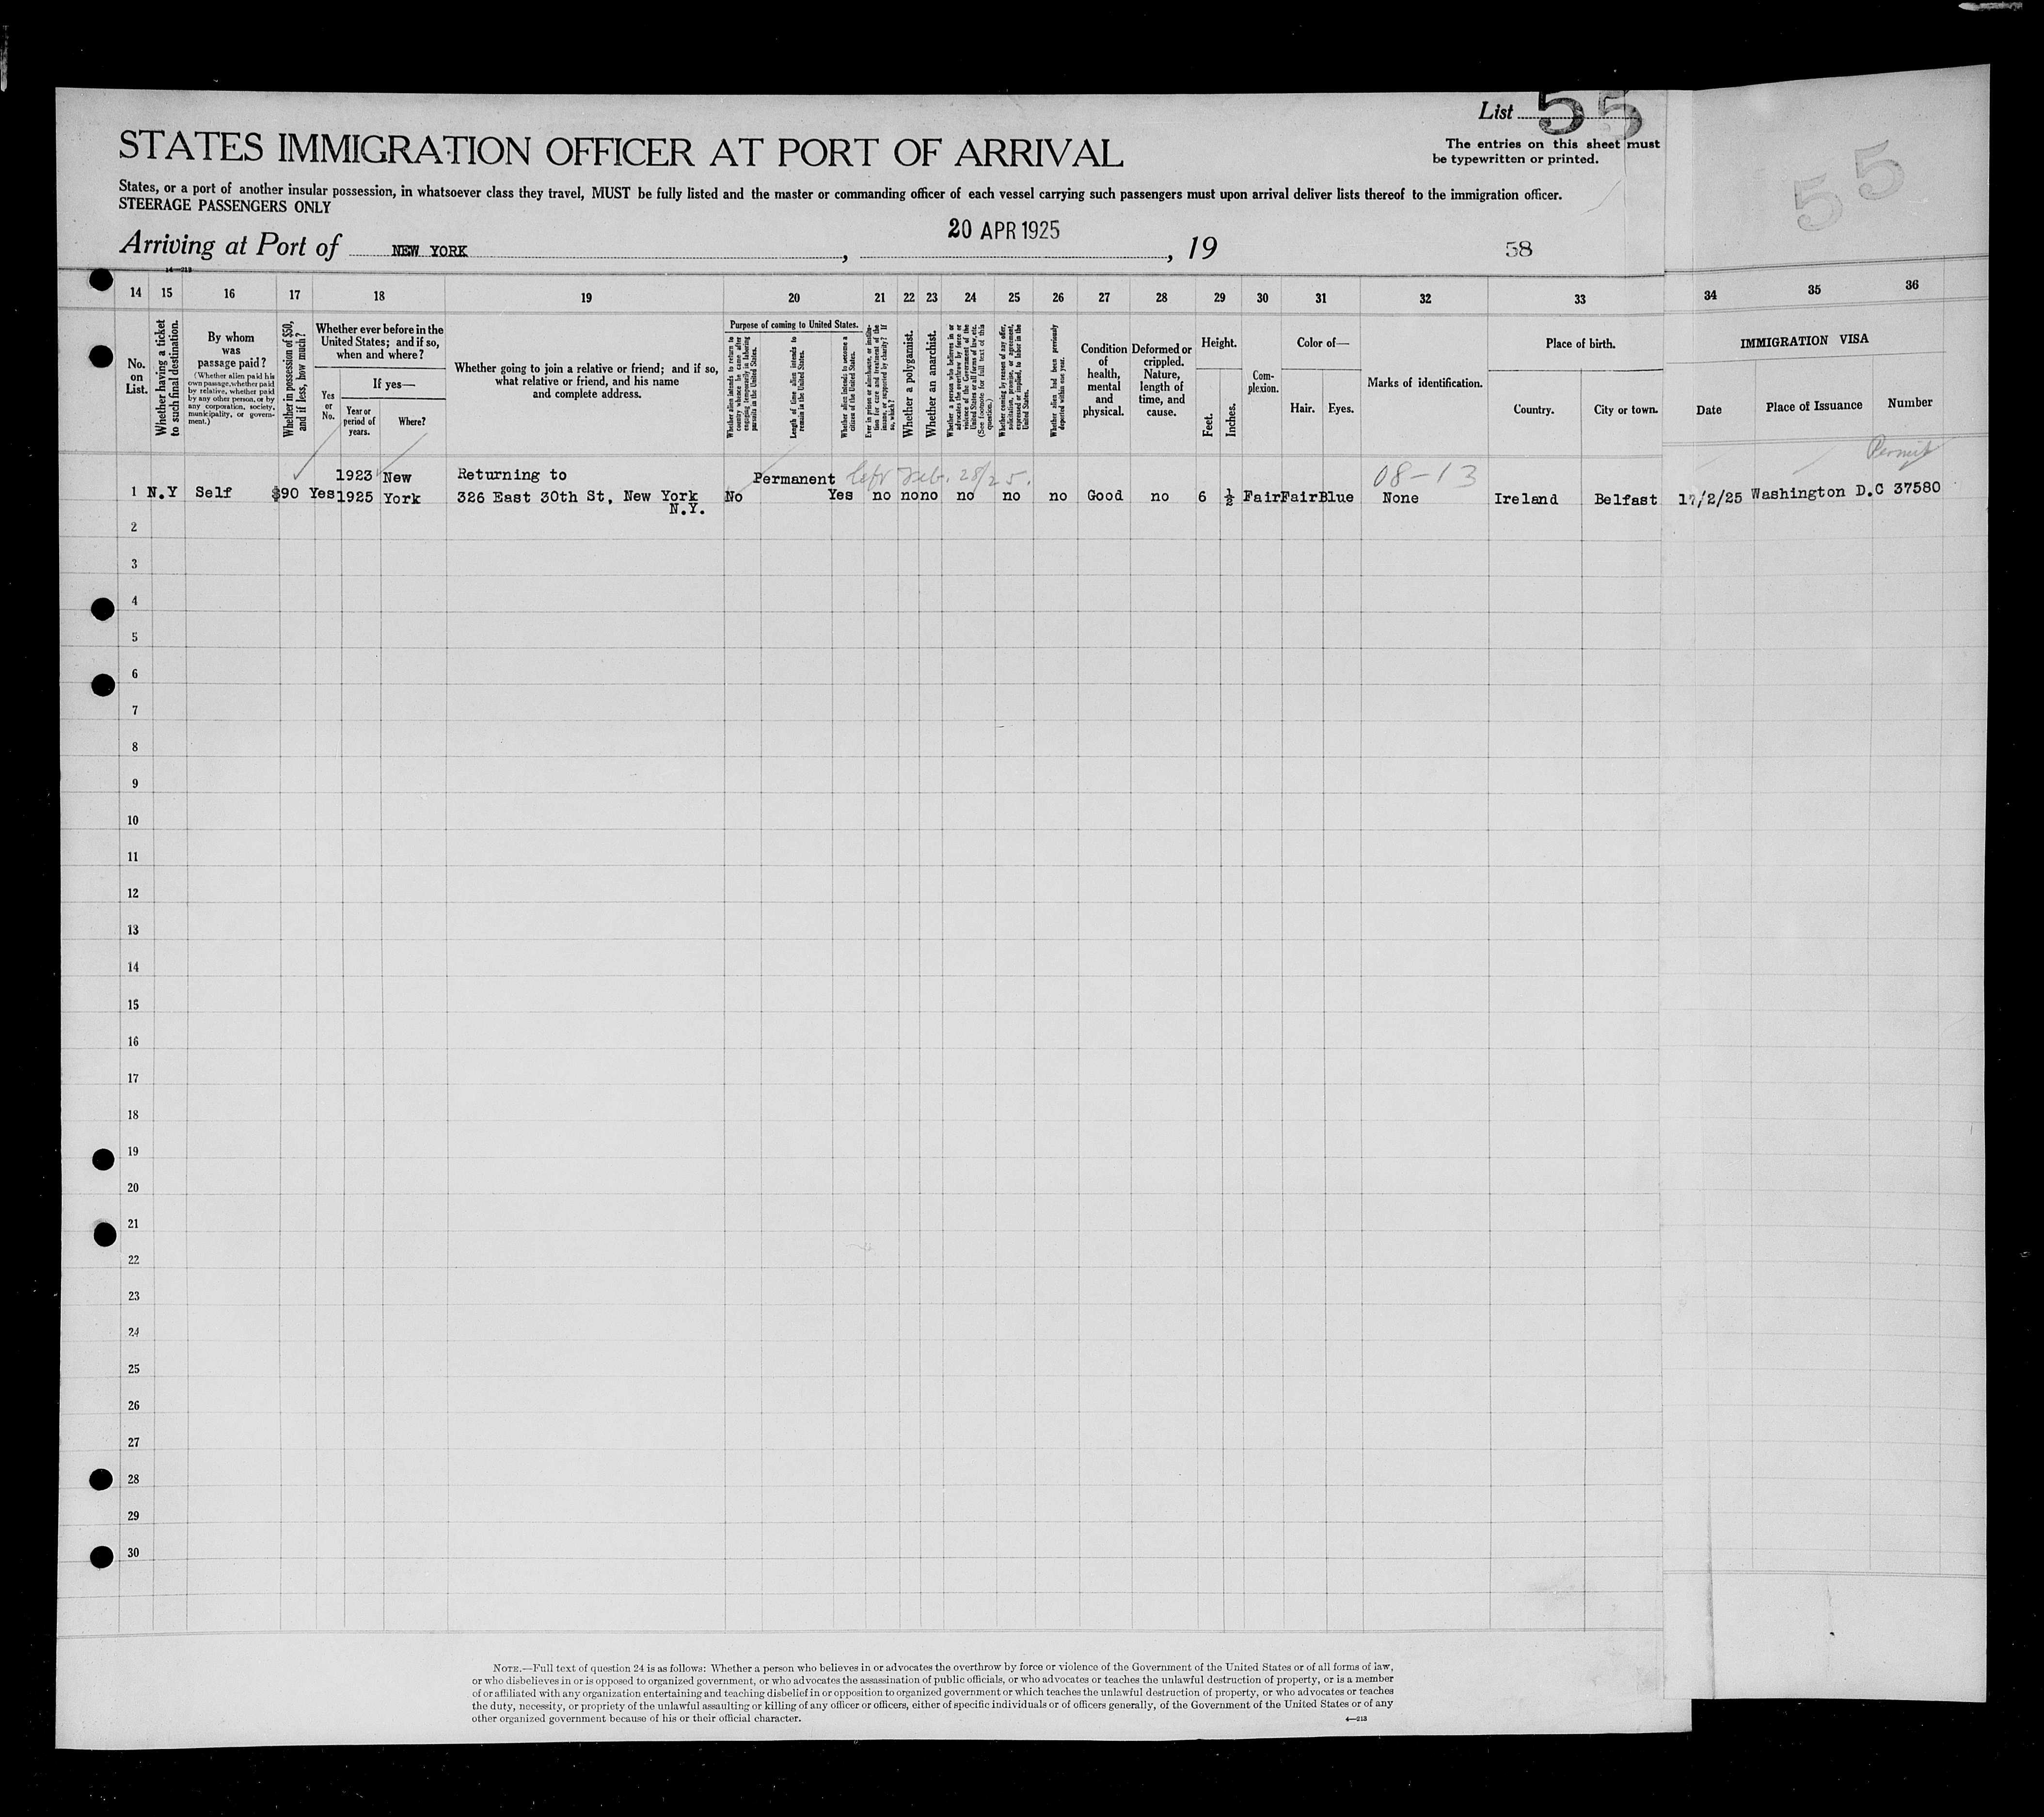 List 55
STATES IMMIGRATION OFFICER AT PORT OF ARRIVAL
The entries on this sheet must
be typewritten or printed.
55
States, or a port of another insular possession, in whatsoever class they travel, MUST be fully listed and the master or commanding officer of each vessel carrying such passengers must upon arrival deliver lists thereof to the immigration officer.
STEERAGE PASSENGERS ONLY
Arriving at Port of NEW YORK, 20 APR 1925, 19
58
14—213
14 15 16 17 18 19 20 21 22 23 24 25 26 27 28 29 30 31 32 33 34 35 36
No. on List.
Whether having a ticket to such final destination.
By whom was passage paid?
(Whether alien paid his own passage, whether paid by relative, whether paid by any other person, or by any corporation, society, municipality, or government.)
Whether in possession of $50, and if less, how much?
Whether ever before in the United States; and if so, when and where?
Yes or No.
If yes—
Year or period of years.
Where?
Whether going to join a relative or friend; and if so, what relative or friend, and his name and complete address.
Purpose of coming to United States.
Whether alien intends to return to country whence he came after engaging temporarily in laboring pursuits in the United States.
Length of time alien intends to remain in the United States.
Whether alien intends to become a citizen of the United States.
Ever in prison or almshouse, or institution for care and treatment of the insane, or supported by charity? If so, which?
Whether a polygamist.
Whether an anarchist.
Whether a person who believes in or advocates the overthrow by force or violence of the Government of the United States or all forms of law, etc. (See footnote for full text of this question.)
Whether coming by reason of any offer, solicitation, promise, or agreement, expressed or implied, to labor in the United States.
Whether alien had been previously deported within one year.
Condition of health, mental and physical.
Deformed or crippled. Nature, length of time, and cause.
Height.
Feet. Inches.
Complexion.
Color of—
Hair. Eyes.
Marks of identification.
Place of birth.
Country. City or town.
IMMIGRATION VISA
Date Place of Issuance Number
Permit
1923 New Returning to Permanent left Feb. 28/25. 08-13
1 N.Y Self $90 Yes 1925 York 326 East 30th St, New York No Yes no no no no no no Good no 6 ½ Fair Fair Blue None Ireland Belfast 17/2/25 Washington D.C 37580
N.Y.
2
3
4
5
6
7
8
9
10
11
12
13
14
15
16
17
18
19
20
21
22
23
24
25
26
27
28
29
30
NOTE.—Full text of question 24 is as follows: Whether a person who believes in or advocates the overthrow by force or violence of the Government of the United States or of all forms of law,
or who disbelieves in or is opposed to organized government, or who advocates the assassination of public officials, or who advocates or teaches the unlawful destruction of property, or is a member
of or affiliated with any organization entertaining and teaching disbelief in or opposition to organized government or which teaches the unlawful destruction of property, or who advocates or teaches
the duty, necessity, or propriety of the unlawful assaulting or killing of any officer or officers, either of specific individuals or of officers generally, of the Government of the United States or of any
other organized government because of his or their official character.
4—213